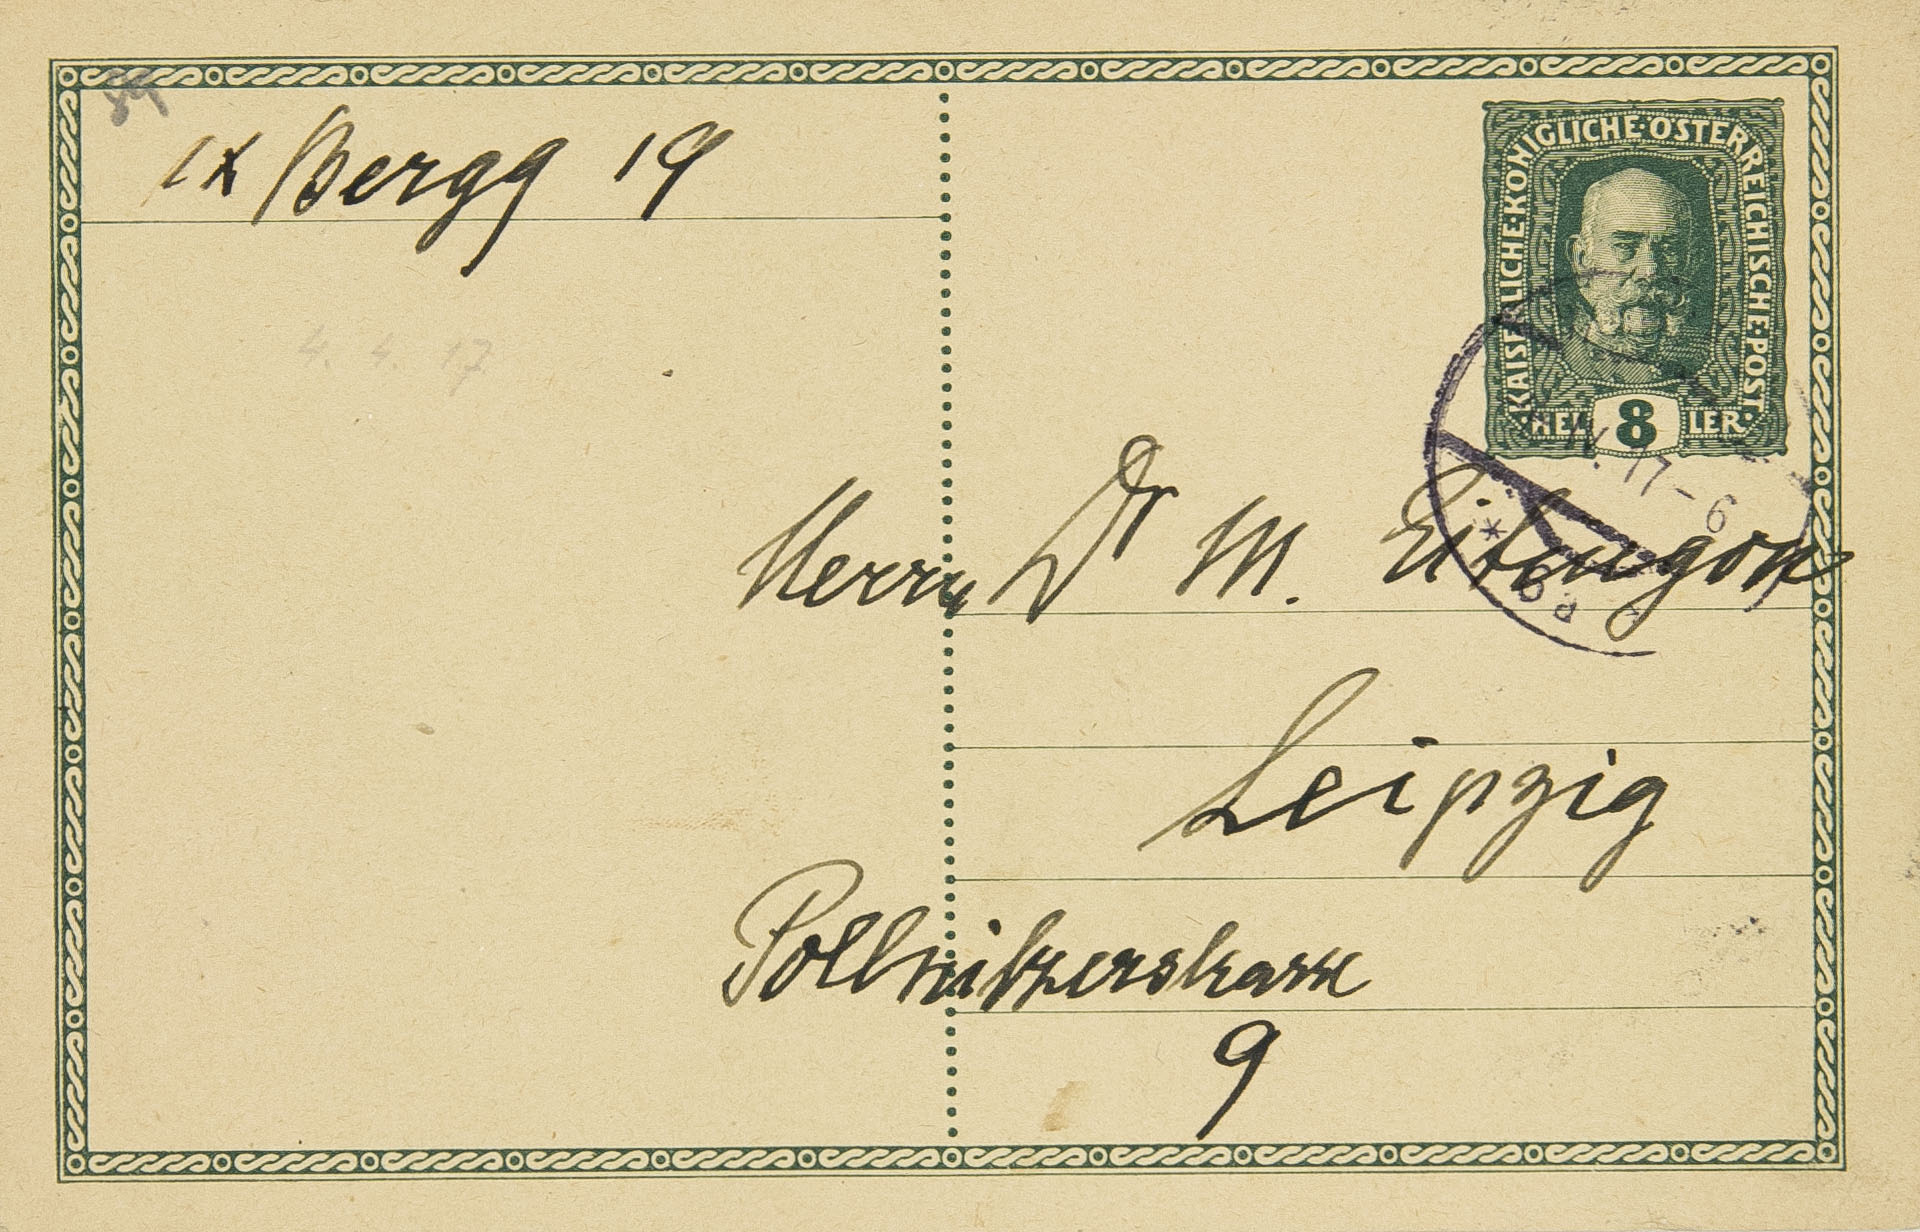 IX Bergg 19
4. 4. 17
KAISERLICHE·KÖNIGLICHE·ÖSTERREICHISCHE·POST·
HEL 8 LER
IV. 17-6
* 6a *
Herrn Dr M. Eitingon
Leipzig
Pollnitzerstrasse
9